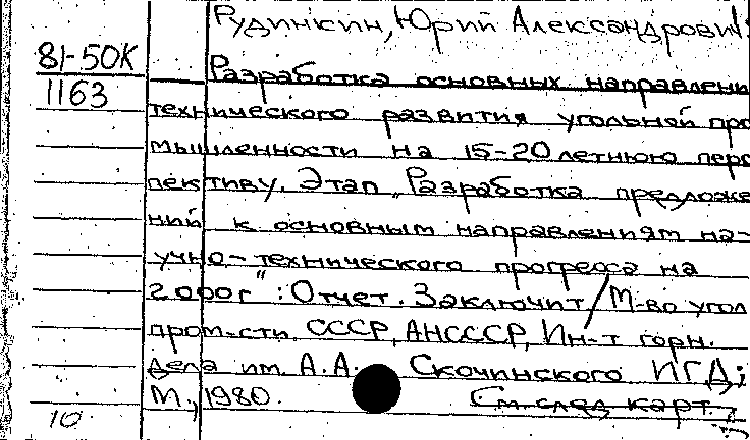 Рудинкин, Юрий Александрович
81-50К
1163
Разработка основных направлени
технического развития угольной про
мышленности на 15-20 летнюю перс
пективу. Этап „Разработка предложе
ний к основным направлениям на-
учно-технического прогресса на
2000г": Отчет. Заключит / М-во угол
пром-сти СССР, АНСССР, Ин-т горн.
дела им. А.А. Скочинского ИГД;
М., 1980. См. след карт.
10